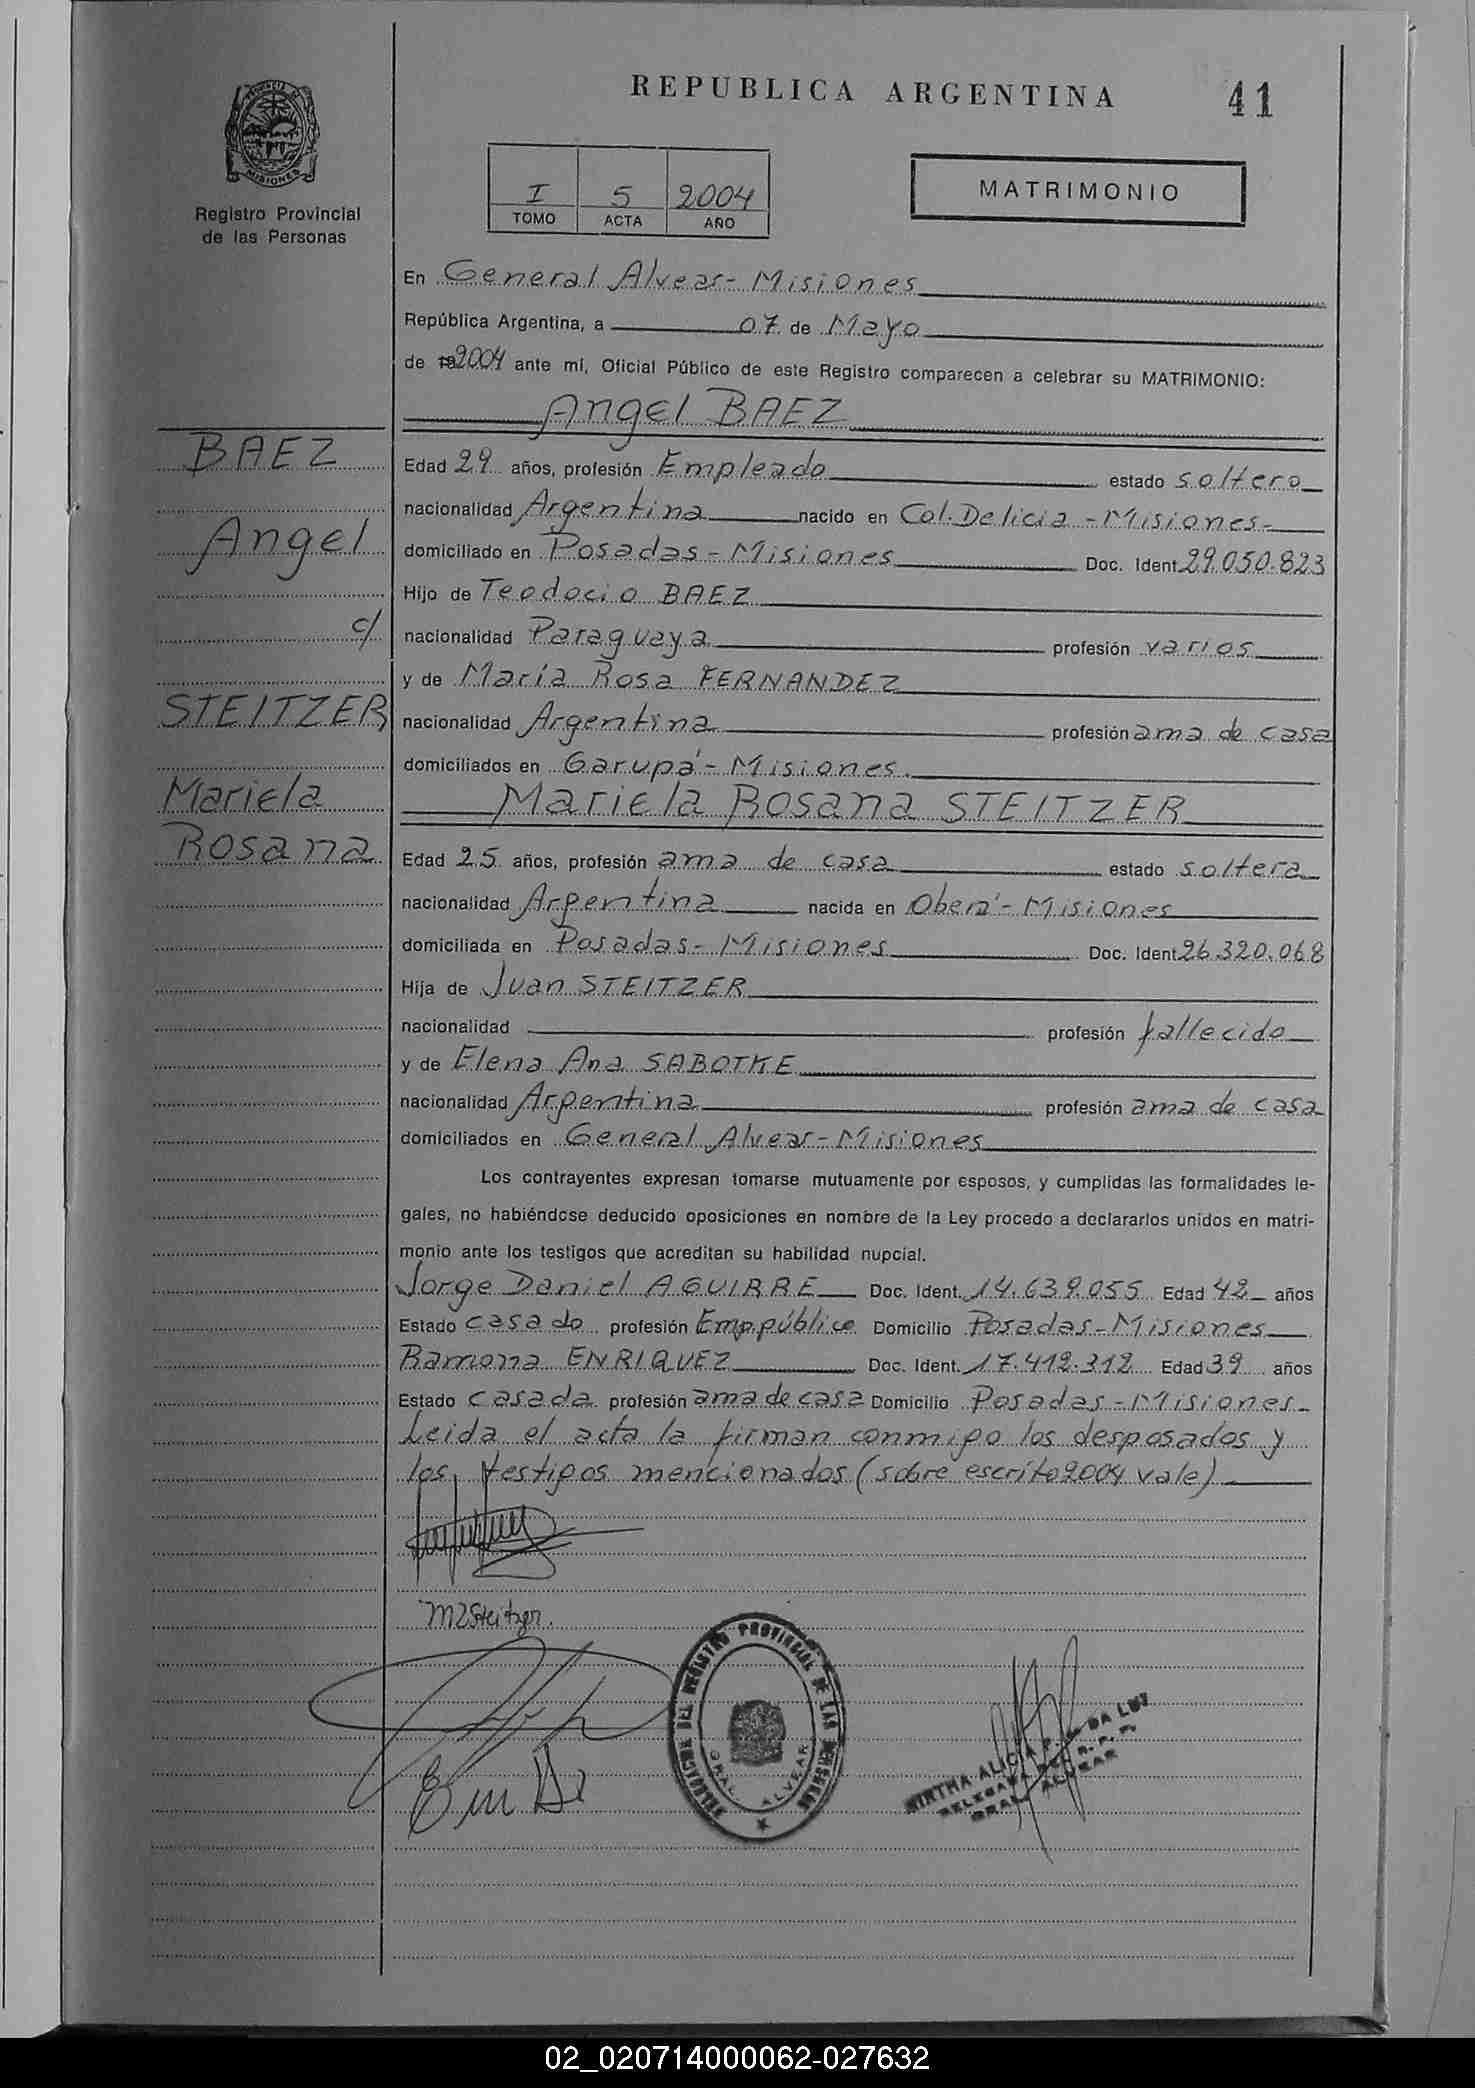 REPUBLICA ARGENTINA
41
MISIONES
Registro Provincial
de las Personas
I 5 2004
TOMO ACTA AÑO
MATRIMONIO
En General Alvear - Misiones
República Argentina, a 07 de Mayo
de 2004 ante mí, Oficial Público de este Registro comparecen a celebrar su MATRIMONIO:
Angel BAEZ
BAEZ
Angel
c/
STEITZER
Mariela
Rosana
Edad 29 años, profesión Empleado estado soltero
nacionalidad Argentina nacido en Col. Delicia - Misiones-
domiciliado en Posadas - Misiones Doc. Ident 29.050.823
Hijo de Teodocio BAEZ
nacionalidad Paraguaya profesión varios
y de María Rosa FERNANDEZ
nacionalidad Argentina profesión ama de casa
domiciliados en Garupá - Misiones.
Mariela Rosana STEITZER
Edad 25 años, profesión ama de casa estado soltera
nacionalidad Argentina nacida en Oberá - Misiones
domiciliada en Posadas - Misiones Doc. Ident 26.320.068
Hija de Juan STEITZER
nacionalidad profesión fallecido
y de Elena Ana SABOTKE
nacionalidad Argentina profesión ama de casa
domiciliados en General Alvear - Misiones
Los contrayentes expresan tomarse mutuamente por esposos, y cumplidas las formalidades le-
gales, no habiéndose deducido oposiciones en nombre de la Ley procedo a declararlos unidos en matri-
monio ante los testigos que acreditan su habilidad nupcial.
Jorge Daniel AGUIRRE Doc. Ident. 14.639.055 Edad 42 años
Estado casado profesión Emp. público Domicilio Posadas - Misiones
Ramona ENRIQUEZ Doc. Ident. 17.412.312 Edad 39 años
Estado casada profesión ama de casa Domicilio Posadas - Misiones-
Leida el acta la firman conmigo los desposados y
los testigos mencionados (sobre escrito 2004 vale)
DELEGACION DEL REGISTRO PROVINCIAL DE LAS PERSONAS
GRAL. ALVEAR
MIRTHA ALICIA DA LUZ
DELEGADA DEL R. P. P.
GRAL. ALVEAR
02_020714000062-027632